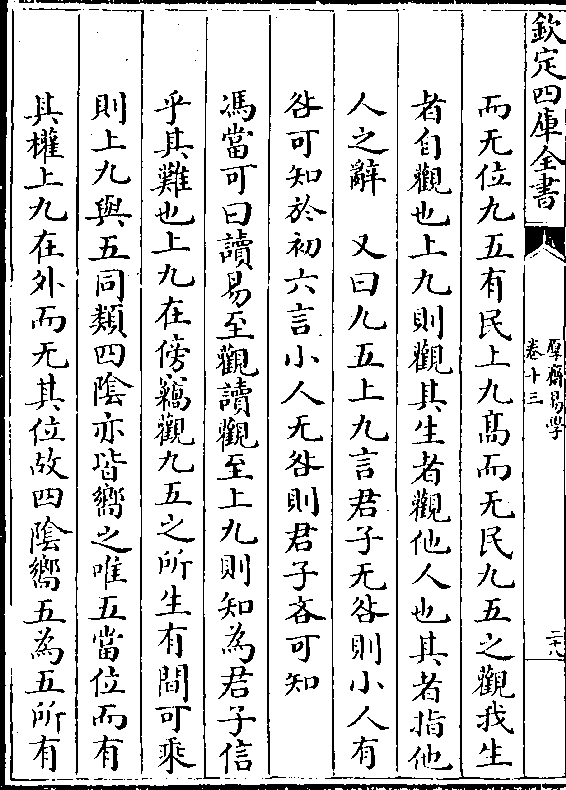 欽定四庫全書
厚齋易學
卷十三
二十八
而无位九五有民上九髙而无民九五之觀我生
者自觀也上九則觀其生者觀他人也其者指他
人之辭　又曰九五上九言君子无咎則小人有
咎可知於初六言小人无咎則君子吝可知
馮當可曰讀易至觀讀觀至上九則知為君子信
乎其難也上九在傍竊觀九五之所生有間可乘
則上九與五同類四陰亦皆嚮之唯五當位而有
其權上九在外而无其位故四陰嚮五為五所有